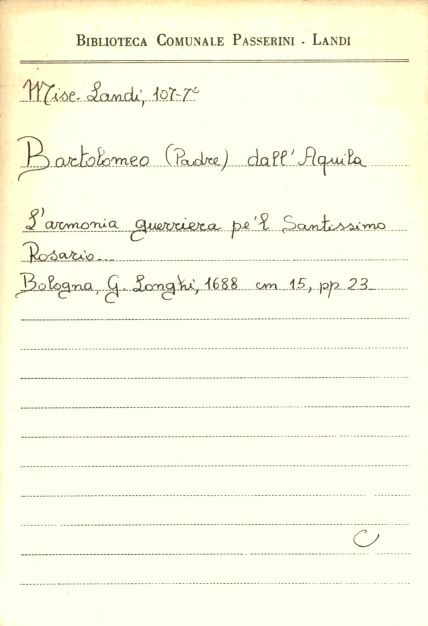 BIBLIOTECA COMUNALE PASSERINI - LANDI
Misc. Landi, 107-7°
Bartolomeo (Padre) dall'Aquila
L'armonia guerriera pe'l Santissimo
Rosario...
Bologna, G. Longhi, 1688 cm 15, pp 23
C